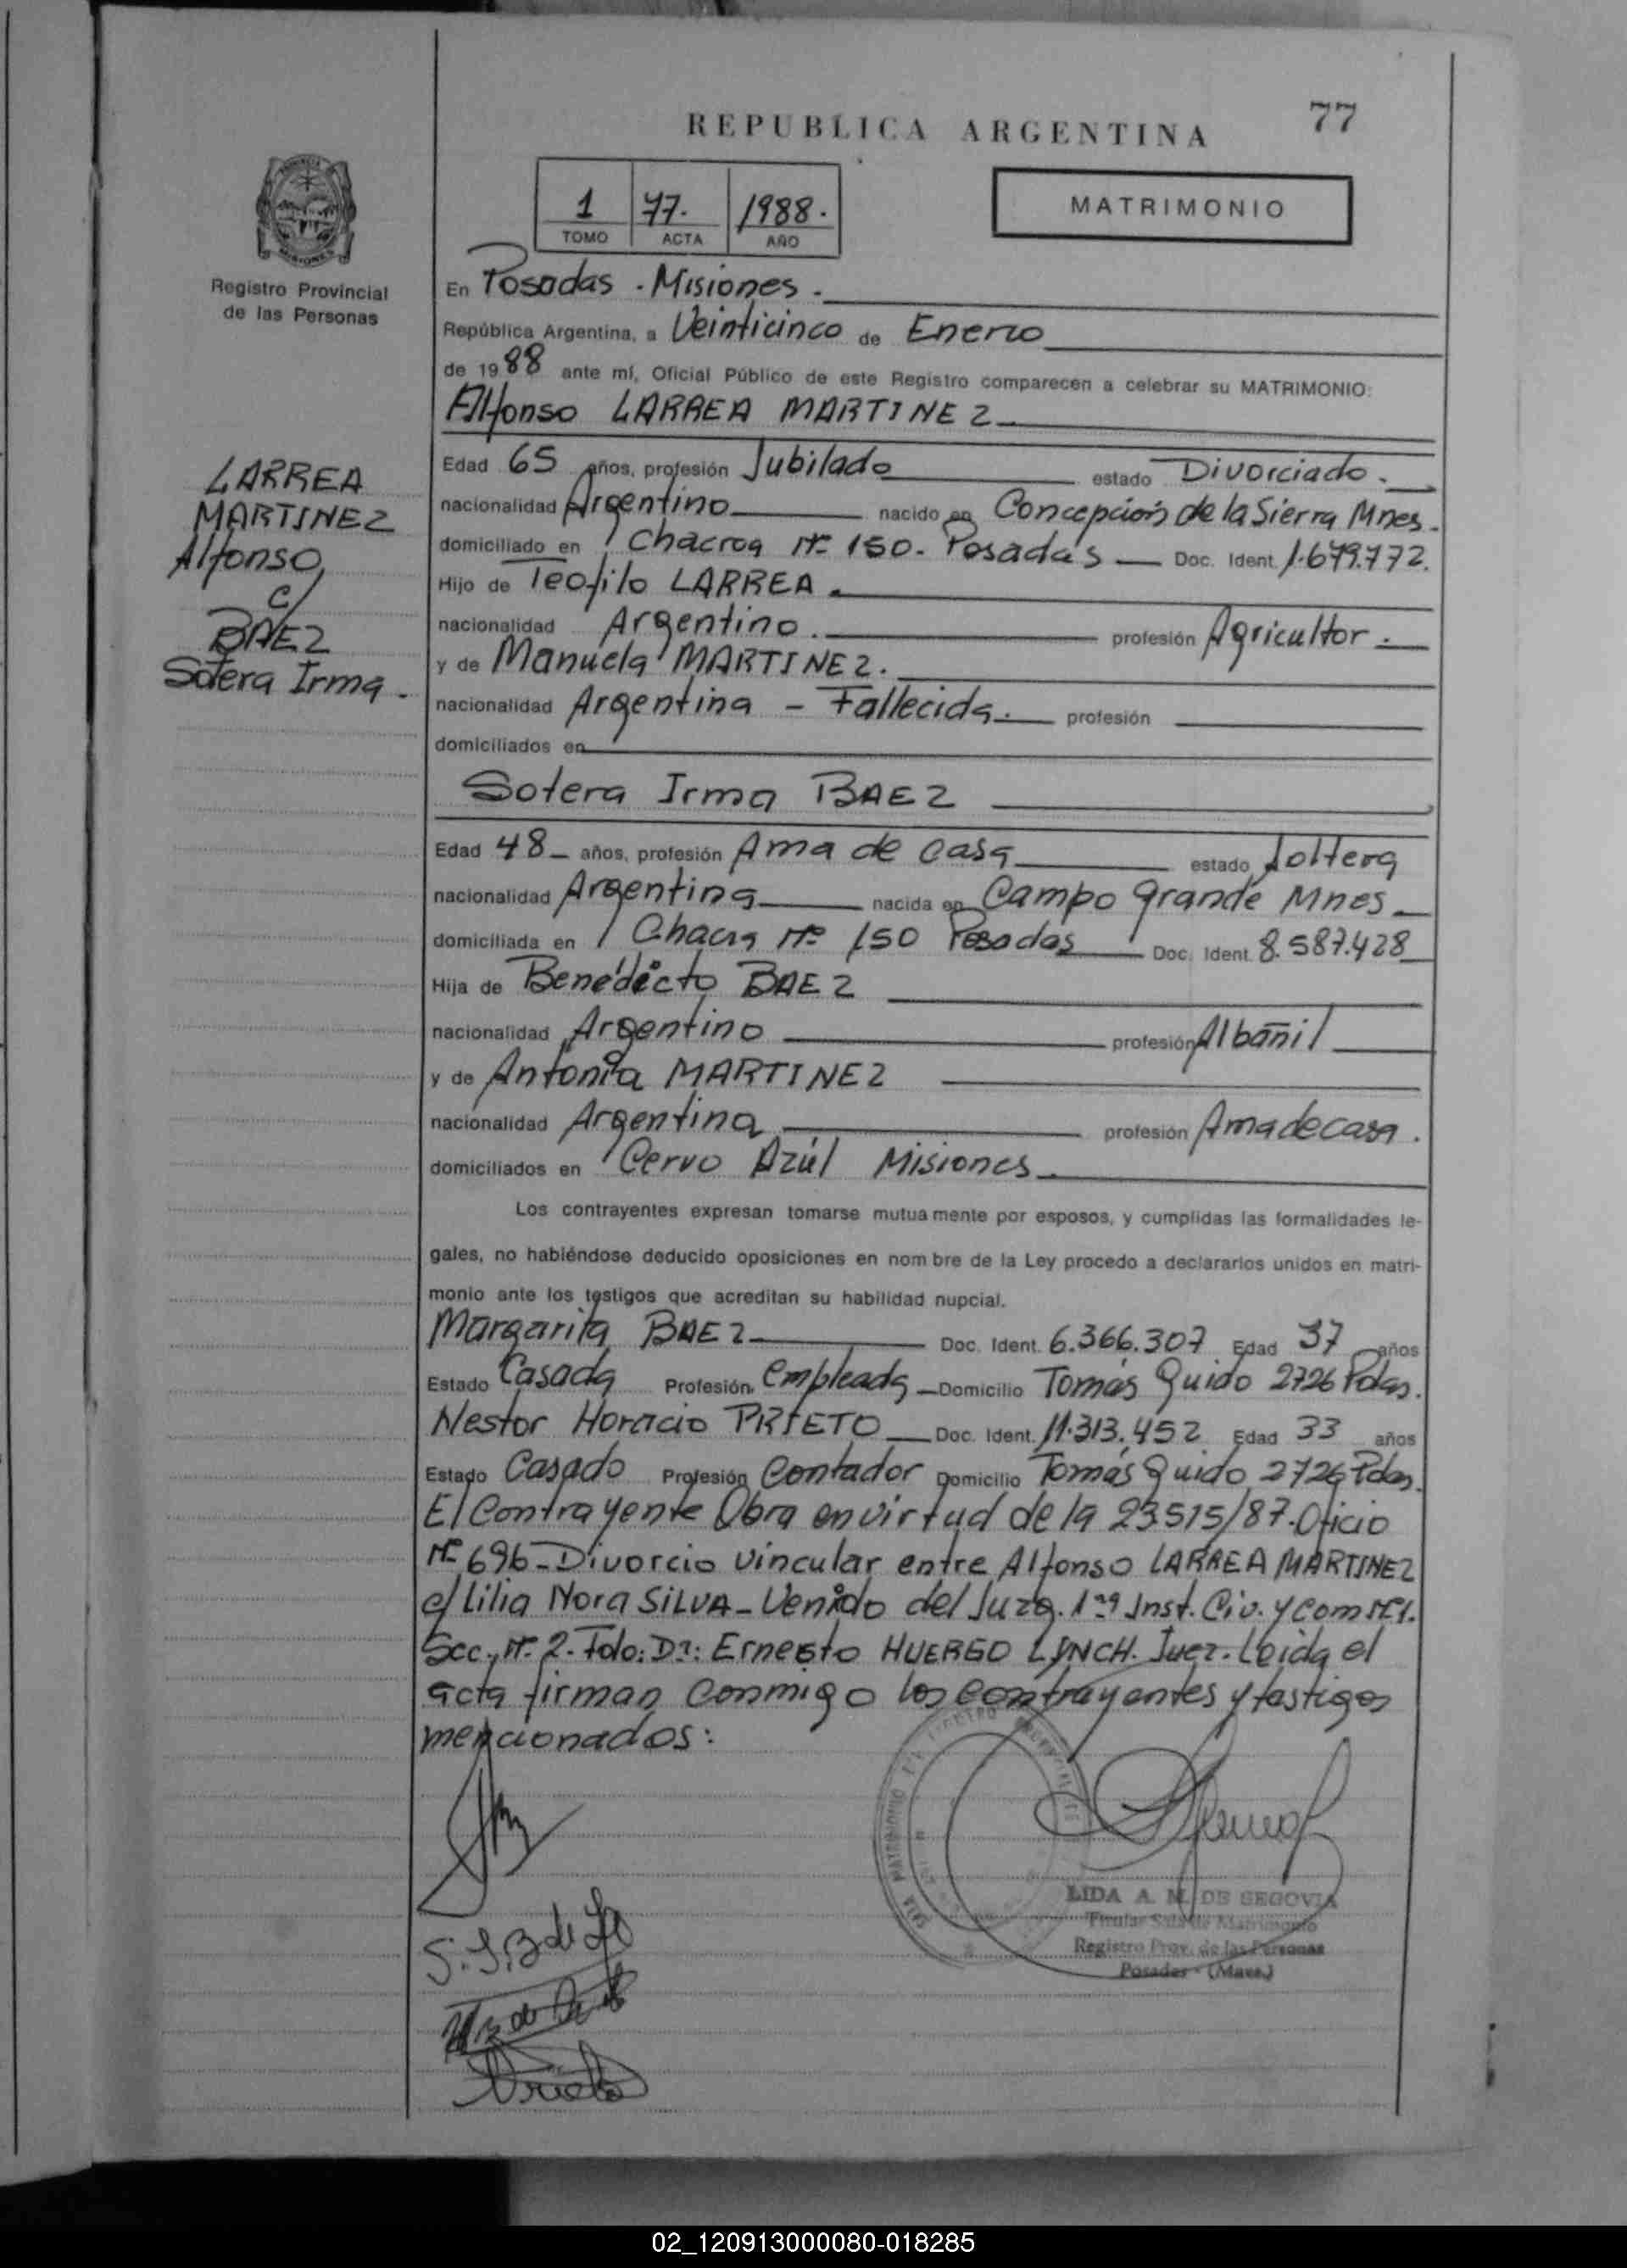 77
REPUBLICA ARGENTINA
MATRIMONIO
1 77. 1988.
TOMO ACTA AÑO
MISIONES
Registro Provincial
de las Personas
En Posadas - Misiones.
República Argentina, a Veinticinco de Enero
de 1988 ante mí, Oficial Público de este Registro comparecen a celebrar su MATRIMONIO:
Alfonso LARREA MARTINEZ
LARREA
MARTINEZ
Alfonso
c/
BAEZ
Sotera Irma.
Edad 65 años, profesión Jubilado estado Divorciado.
nacionalidad Argentino nacido en Concepción de la Sierra Mnes.
domiciliado en Chacra Nº 150. Posadas Doc. Ident. 1.679.772.
Hijo de Teofilo LARREA.
nacionalidad Argentino. profesión Agricultor.
y de Manuela MARTINEZ.
nacionalidad Argentina - Fallecida. profesión
domiciliados en
Sotera Irma BAEZ
Edad 48 años, profesión Ama de casa estado Soltera
nacionalidad Argentina nacida en Campo Grande Mnes
domiciliada en Chacra Nº 150 Posadas Doc. Ident. 8.587.428
Hija de Benedicto BAEZ
nacionalidad Argentino profesión Albañil
y de Antonia MARTINEZ
nacionalidad Argentina profesión Ama de casa.
domiciliados en Cervo Azúl Misiones
Los contrayentes expresan tomarse mutuamente por esposos, y cumplidas las formalidades le-
gales, no habiéndose deducido oposiciones en nombre de la Ley procedo a declararlos unidos en matri-
monio ante los testigos que acreditan su habilidad nupcial.
Margarita BAEZ Doc. Ident. 6.366.307 Edad 37 años
Estado Casada Profesión Empleada Domicilio Tomás Guido 2726 Pdas.
Nestor Horacio PRIETO Doc. Ident. 11.313.452 Edad 33 años
Estado Casado Profesión Contador Domicilio Tomás Guido 2726 Pdas.
El Contrayente Obra en virtud de la 23.515/87. Oficio
Nº 696 - Divorcio vincular entre Alfonso LARREA MARTINEZ
c/ Lilia Nora SILVA - Venido del Juzg. 1ra Inst. Civ. y Com Nº1.
Sec. Nº 2. Fdo: Dr: Ernesto HUERGO LYNCH. Juez. Leida el
acta firman conmigo los contrayentes y testigos
mencionados:
S. I. B de
Prieto
LIDA A. M. DE SEGOVIA
Titular Sala de Matrimonio
Registro Prov. de las Personas
Posadas - (Mnes.)
02_120913000080-018285